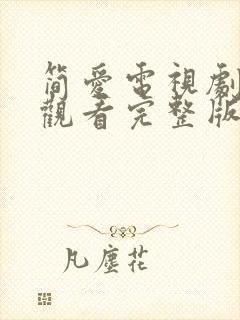 简愛電視劇
觀看完整版
凡塵花